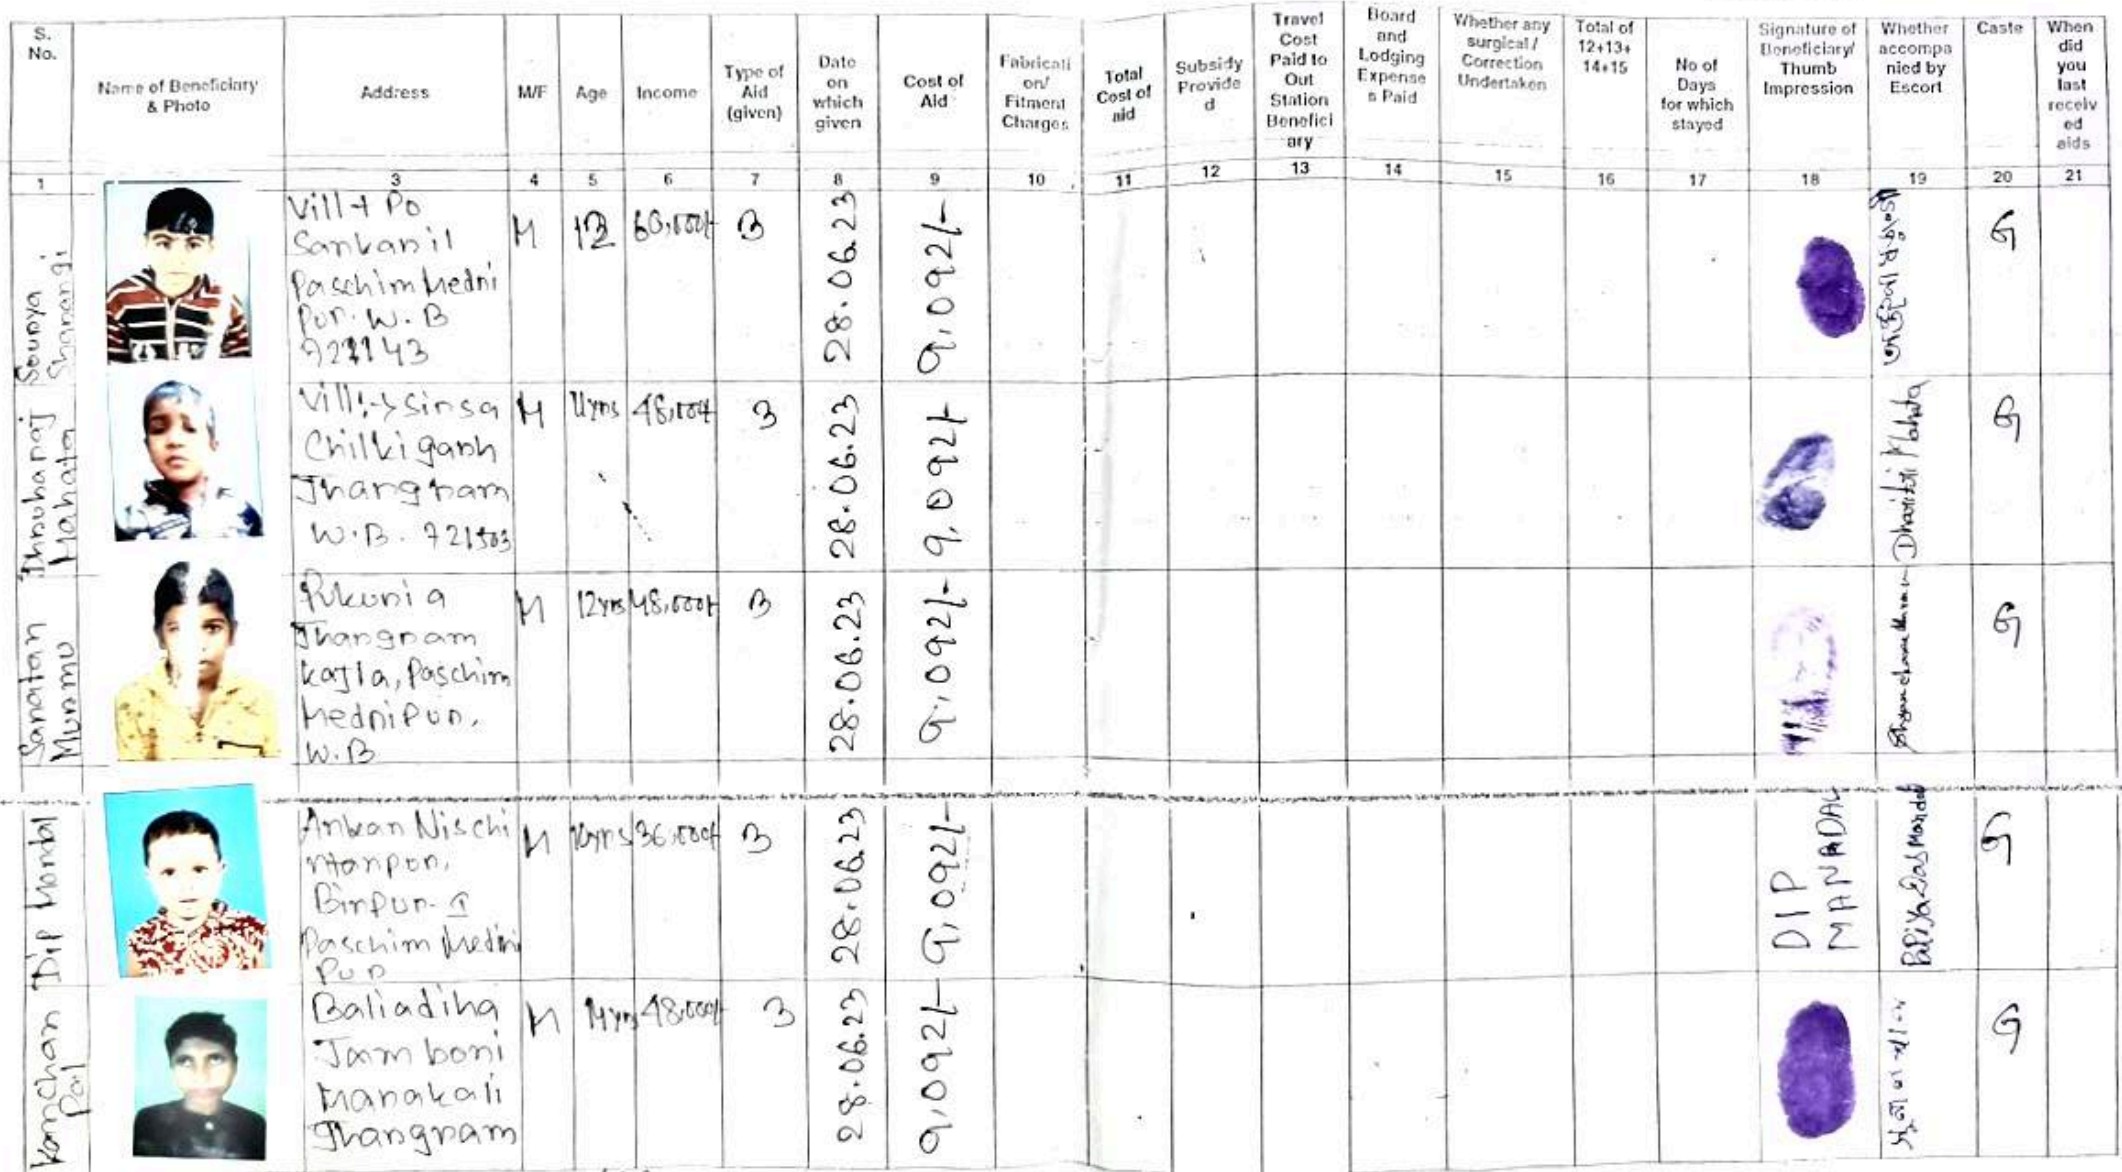 S. No.
Name of Beneficiary & Photo
Address
M/F
Age
Income
Type of Aid (given)
Date on which given
Cost of Aid
Fabricati on/ Fitment Charges
Total Cost of aid
Subsidy Provide d
Travel Cost Paid to Out Station Benefici ary
Board and Lodging Expense s Paid
Whether any surgical / Correction Undertaken
Total of 12+13+ 14+15
No of Days for which stayed
Signature of Beneficiary/ Thumb Impression
Whether accompa nied by Escort
Caste
When did you last receiv ed aids
1 3 4 5 6 7 8 9 10 11 12 13 14 15 16 17 18 19 20 21
Soumya
Vill + Po
Sankanil
Paschim Medni
Pur. W. B
M
60,000/-
B
28.06.23
9,092/-
G
Mahata
Vill:→ Sinsa
Chilkigarh
Jhargram
W.B. 721503
M
11yrs
48,000/-
B
28.06.23
9,092/-
Dharitri Mahata
G
Sanatan
Murmu
Jhargram
Kajla, Paschim
Mednipur,
W.B
M
12yrs
48,000/-
B
28.06.23
9,092/-
G
Dip Mondal
Ankan Nischi
ntanpur,
Binpur-I
Paschim Medni
Pur
M
36,000/-
B
28.06.23
9,092/-
DIP
MANADAL
G
Kanchan
Pal
Baliadiha
Jamboni
Manakali
Jhargram
M
48,000/-
B
28.06.23
9,092/-
G